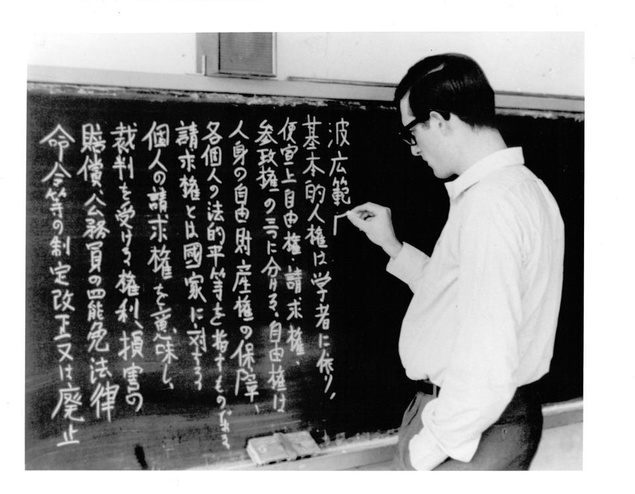 波広範
基本的人権は学者に依り、
便宜上自由権、請求権、
参政権の三つに分ける。自由権は
人身の自由財産権の保障、
各個人の法的平等を指すものである
請求権とは國家に対する
個人の請求権を意味し、
裁判を受ける権利、損害の
賠償、公務員の罷免、法律
命令等の制定改正又は廃止